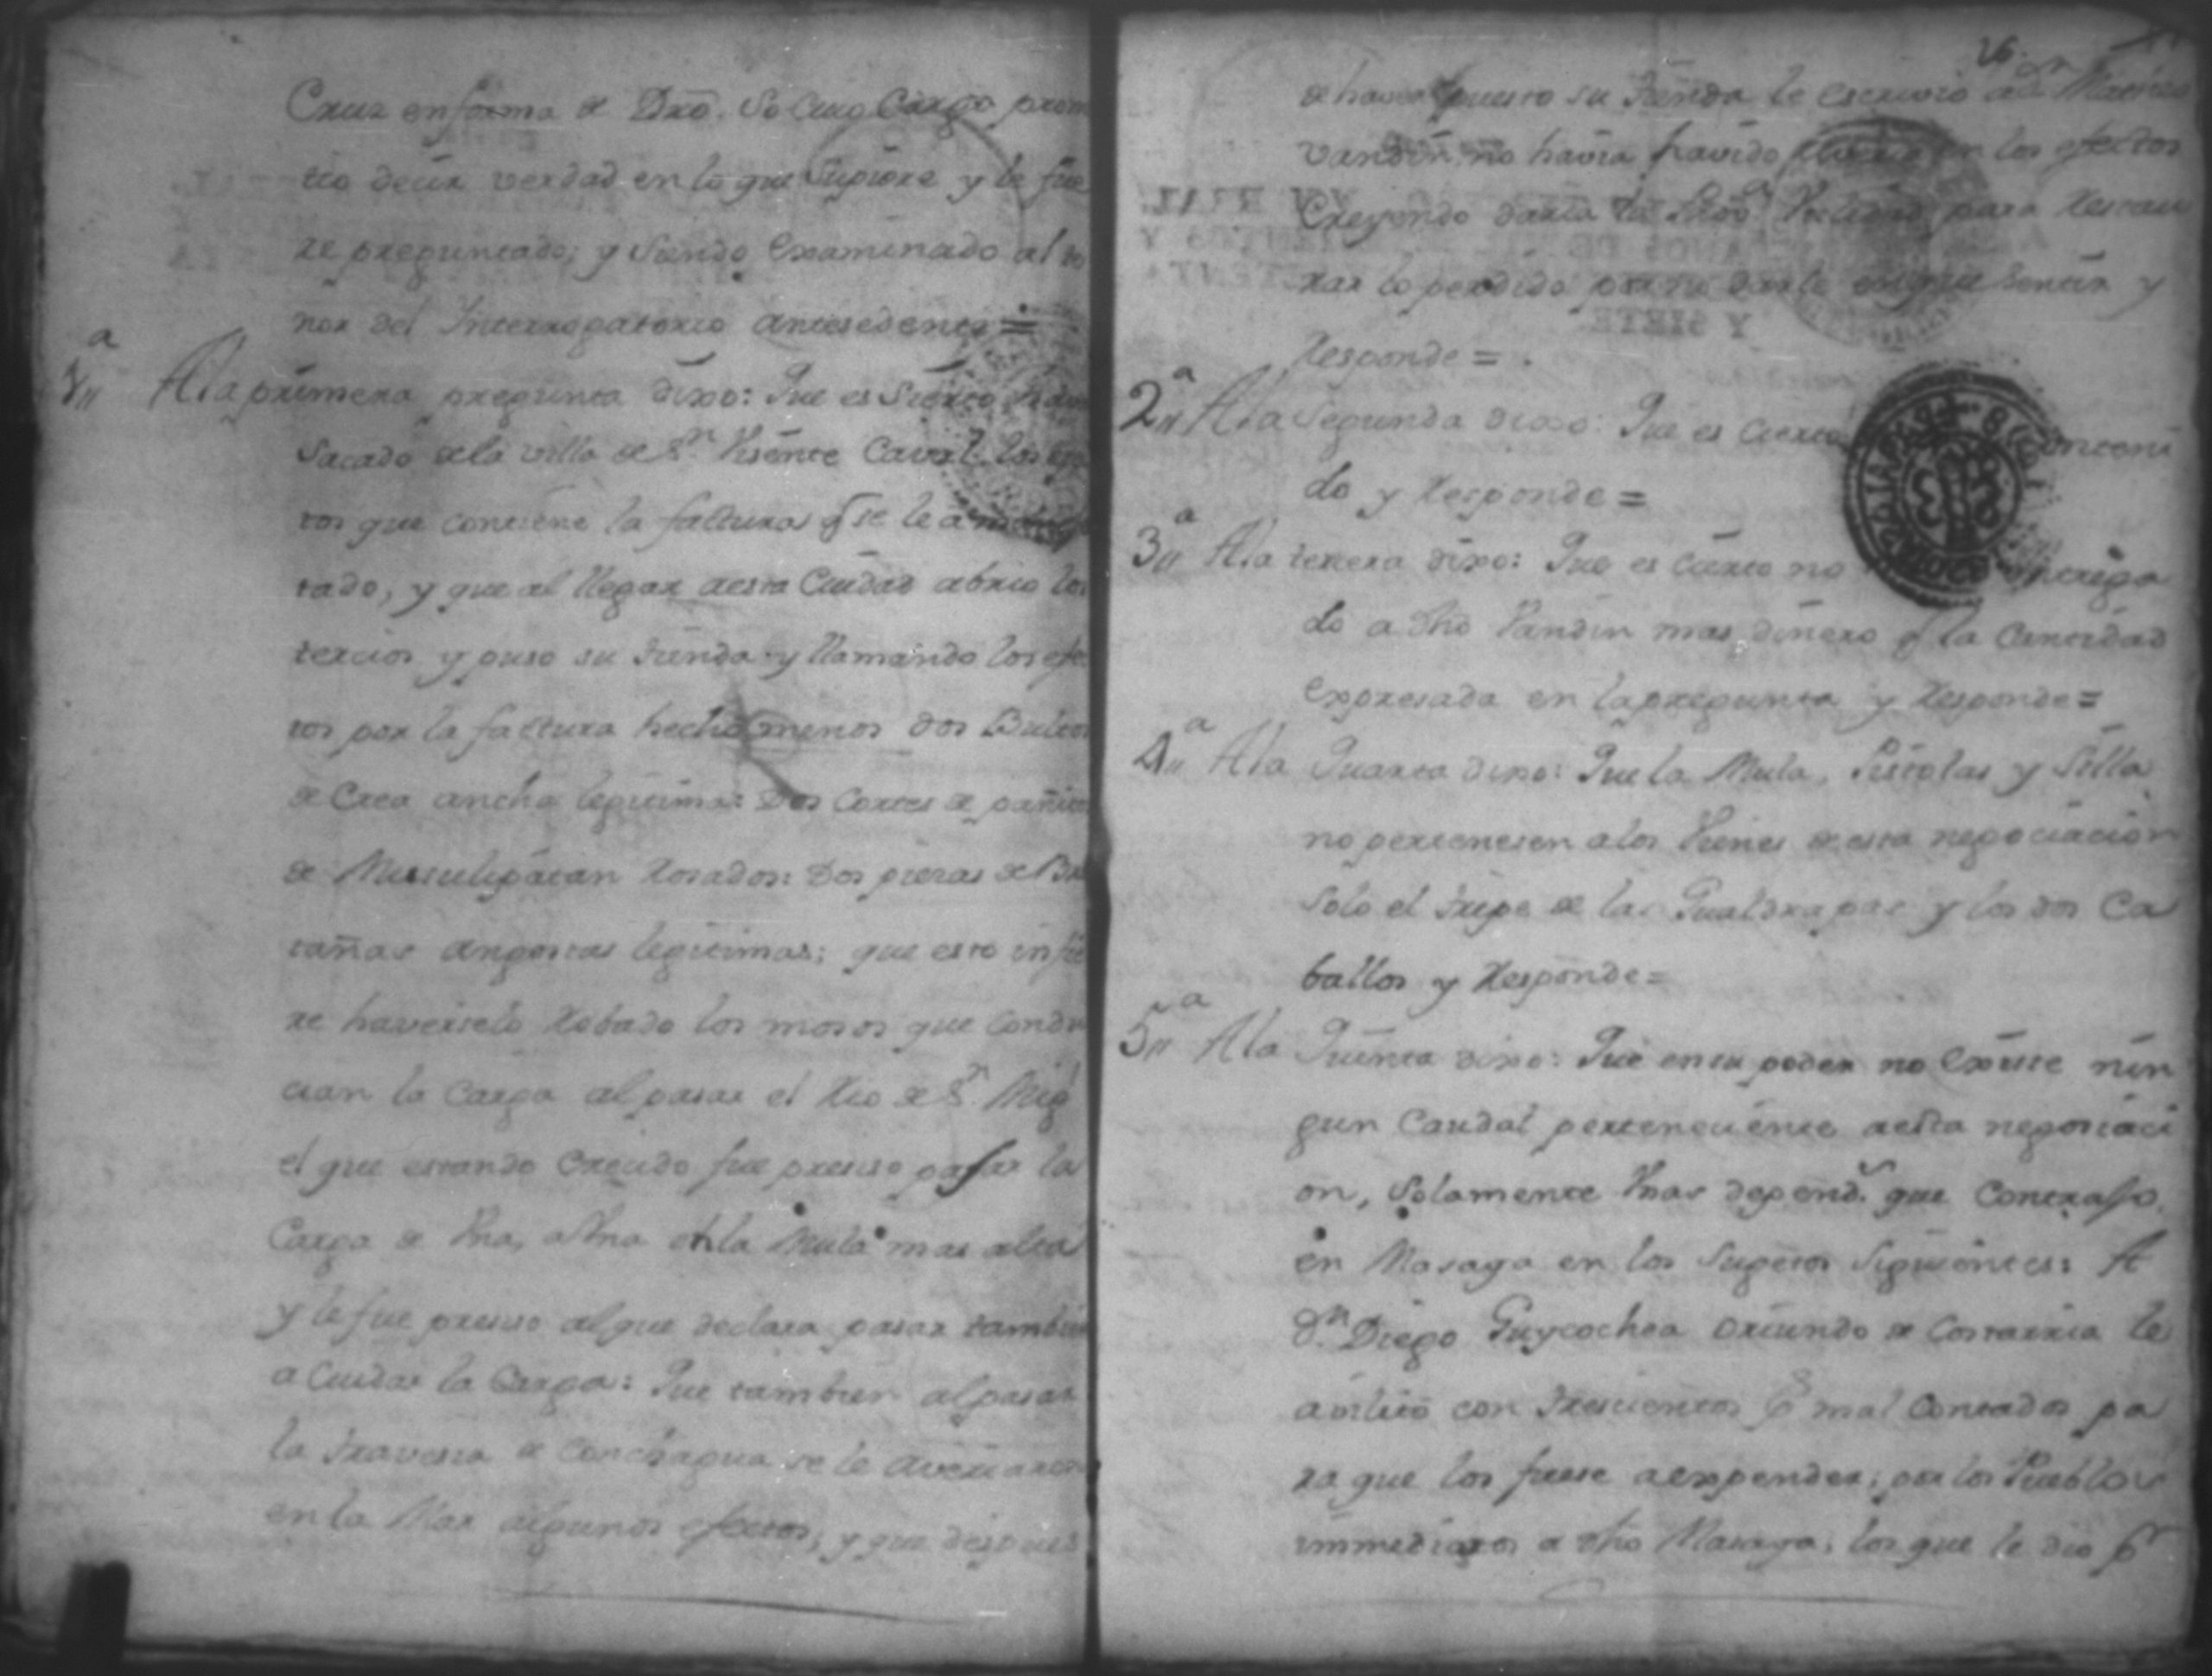 Cruz en forma de Dro. So cuio Cargo prom
tio decir verdad en lo que Supiere y le fue
re preguntado; y siendo Examinado al te
nor del Interrogatorio antesedente =
1a Ala primera pregunta dixo: Que es Sierto
Sacado dela villa de Sn. Visente Caval los efe
tos que contiene la factura q se le a
tado, y que al llegar aesta Ciudad abrio los
tercios y puso su tienda y llamando los efe
tos por la factura hecho menos dos Bultos
de Crea ancha legitima: Dos Cortes de pañito
de Mussulipatan Rosados: Dos piesas de Bre
tañas angostas legitimas; que esto infie
re haverselo Robado los mosos que Condu
cian la Carga al pasar el Rio de Sn. Migl
el que estando Crecido fue presiso pasar la
Carga de Una, a Una en la Mula mas alta
y le fue presiso al que declara pasar tambien
a Cuidar la Carga: Que tambien al pasar
la travesia de Conchagua se le averiaron
en la Mar algunos efectos; y que despues
26
de haver puesto su tienda le escrivio a
vandin no havia havido en los efectos
Creyendo daria la para Restau
rar lo perdido por no darle en que sentir y
Responde =
2a Ala Segunda dixo: Que es Cierto Conteni
do y Responde =
3a Ala tersera dixo: Que es Cierto no entrega
do a dho Vandin mas dinero q la Cantidad
Expresada en la pregunta y Responde =
4a Ala Quarta dixo: Que la Mula, Pistolas y Silla
no pertenesen alos Vienes de esta negociacion
Solo el tripe de las Gualdrapas y los dos Ca
ballos y Responde =
5a Ala Quinta dixo: Que en su poder no Existe nin
gun Caudal perteneciente aesta negosiaci
on, Solamente Unas depend.s que Contrajo
en Masaya en los Sugetos Siguientes: A
Dn. Diego Guycochea oriundo de Costarrica le
avilitó con tresientos ps mal Contados pa
ra que los fuese aexpender; por los Pueblos
immediatos a dho Masaya; los que le dio pr